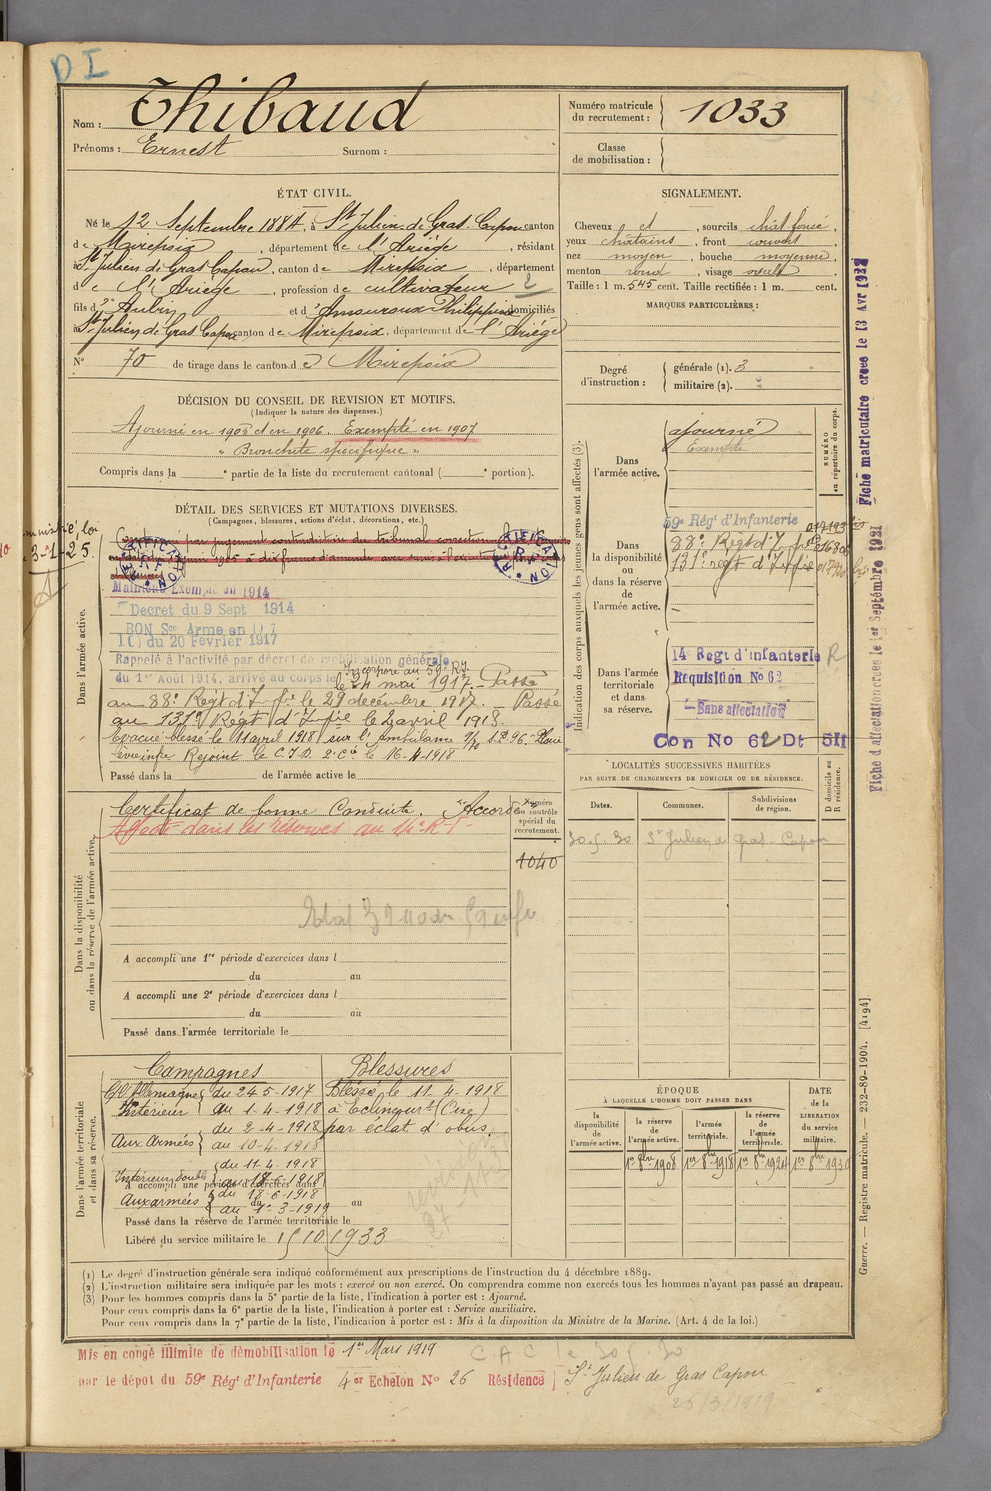 DI
Nom : Thibaud
Prénoms : Ernest Surnom :
Numéro matricule du recrutement : 1033
Classe de mobilisation :
ÉTAT CIVIL.
Né le 12 Septembre 1884, à St Julien de Gras Capou canton
de Mirepoix, département de l'Ariège, résidant
à St Julien de Gras Capou, canton de Mirepoix, département
de l'Ariège, profession de cultivateur 2
fils d' Aubin et d'Amouroux Philippine domiciliés
à St Julien de Gras Capou canton de Mirepoix, département de l'Ariège
N° 70 de tirage dans le canton de Mirepoix
SIGNALEMENT.
Cheveux et, sourcils chat foncé,
yeux châtains, front couvert,
nez moyen, bouche moyenne,
menton rond, visage ovale
Taille : 1 m. 545 cent. Taille rectifiée : 1 m. cent.
MARQUES PARTICULIÈRES :
Degré d'instruction : générale (1). 3
militaire (2).
DÉCISION DU CONSEIL DE REVISION ET MOTIFS.
(Indiquer la nature des dispenses.)
Ajourné en 1905 et en 1906. Exempté en 1907
" Bronchite spécifique "
Compris dans la e partie de la liste du recrutement cantonal ( e portion).
DÉTAIL DES SERVICES ET MUTATIONS DIVERSES.
(Campagnes, blessures, actions d'éclat, décorations, etc.)
loi
3-1-25.
par jugement contradictoire du tribunal correctionnel
RECTIFICATION
RECTIFICATION
Maintenu Exempté en 1914
Décret du 9 Sept 1914
BON Sce Armé en 1917
du 20 Février 1917
Rappelé à l'activité par décret de mobilisation générale
du 1er Août 1914, arrivé au corps le
Incorporé au 59e RI.
le 24 mai 1917. Passé
au 88e Régt d'I fie le 29 décembre 1917. Passé
au 131e Régt d'Infie le 2 avril 1918.
Evacué blessé le 11 avril 1918 sur l'Ambulance
Rejoint le C.I.D. 2e Cie le 16-4-1918
Passé dans la de l'armée active le
Dans l'armée active.
Indication des corps auxquels les jeunes gens sont affectés (3).
NUMÉRO au répertoire du corps.
Dans l'armée active.
ajourné
Exempté
Dans la disponibilité ou dans la réserve de l'armée active.
59e Régt d'Infanterie
88e Régt d'Infie
131e régt d'Infie
Dans l'armée territoriale et dans sa réserve.
14 Regt d'Infanterie R
Requisition No 62
Sans affectation
Con No 62 Dt 5II
Fiche matriculaire créée le 13 Avr 1922
Fiche d'affectation créée le 1er Septembre 1921
Certificat de bonne Conduite. "Accordé"
Affecté dans les réserves au 14e R.I.
Numéro au contrôle spécial du recrutement.
1040
Dans la disponibilité ou dans la réserve de l'armée active.
A accompli une 1re période d'exercices dans l
du au
A accompli une 2e période d'exercices dans l
du au
Passé dans l'armée territoriale le
LOCALITÉS SUCCESSIVES HABITÉES
PAR SUITE DE CHANGEMENTS DE DOMICILE OU DE RÉSIDENCE.
Dates. Communes. Subdivisions de région. D domicile ou R résidence.
30.5.30 St Julien de Gras-Capou
Dans l'armée territoriale et dans sa réserve.
Campagnes Blessures
C/ Allemagne
Intérieur du 24-5-1917 au 1-4-1918
Aux Armées du 2-4-1918 au 10-4-1918
Intérieur double du 11-4-1918
Aux armées du 18-6-1918 au 1-3-1919
Blessé le 11-4-1918
à Elincourt (Oise)
par éclat d'obus
A accompli une période d'exercices dans l
du au
Passé dans la réserve de l'armée territoriale le
Libéré du service militaire le 15 10 1933
ÉPOQUE
À LAQUELLE L'HOMME DOIT PASSER DANS
la disponibilité de l'armée active.
la réserve de l'armée active.
l'armée territoriale.
la réserve de l'armée territoriale.
DATE de la LIBÉRATION du service militaire.
1er 8bre 1908 1er 8bre 1918 1er 8bre 1924 1er 8bre 1930
Guerre. — Registre matricule. — 232-89-1904. [4194]
(1) Le degré d'instruction générale sera indiqué conformément aux prescriptions de l'instruction du 4 décembre 1889.
(2) L'instruction militaire sera indiquée par les mots : exercé ou non exercé. On comprendra comme non exercés tous les hommes n'ayant pas passé au drapeau.
(3) Pour les hommes compris dans la 5e partie de la liste, l'indication à porter est : Ajourné.
Pour ceux compris dans la 6e partie de la liste, l'indication à porter est : Service auxiliaire.
Pour ceux compris dans la 7e partie de la liste, l'indication à porter est : Mis à la disposition du Ministre de la Marine. (Art. 4 de la loi.)
Mis en congé illimité de démobilisation le 1er Mars 1919
CAC le 30.5.30
par le dépôt du 59e Régt d'Infanterie 4er Echelon No 26 Résidence St Julien de Gras Capou
26/3/1919